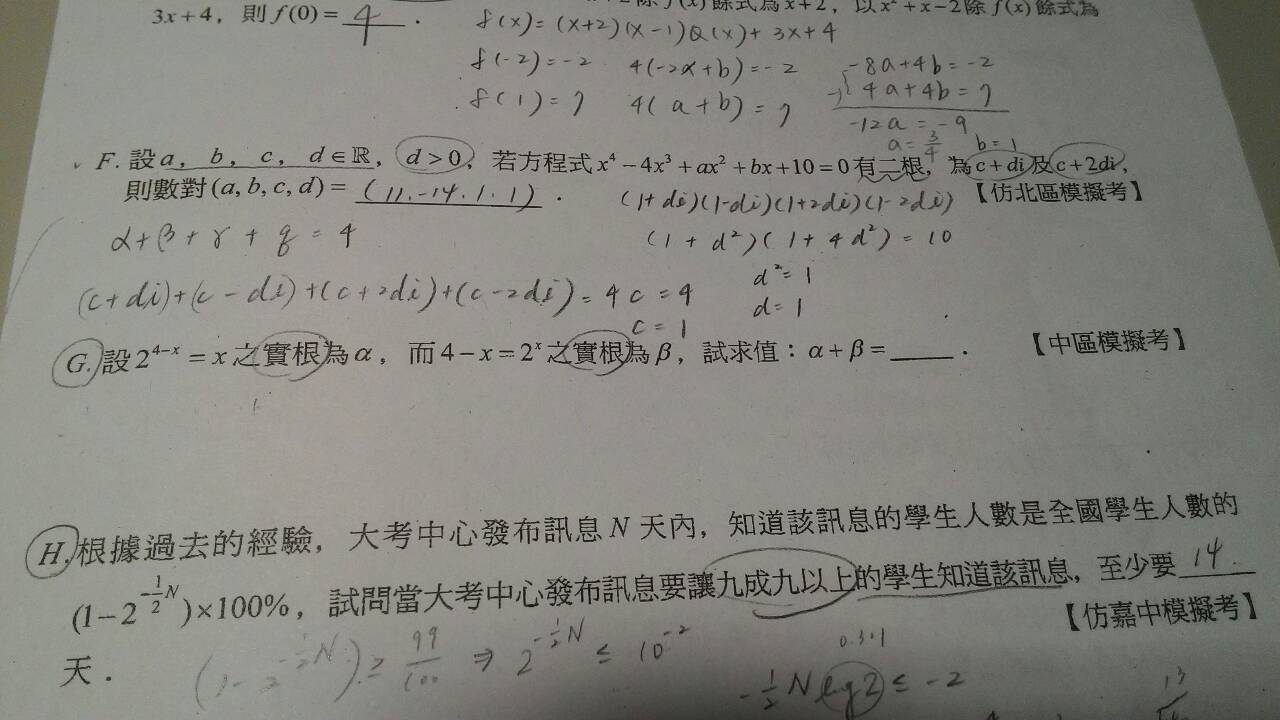 除 f(x) 餘式為 x+2，以 x²+x−2 除 f(x) 餘式為
3x+4，則 f(0)= 4 ．
f(x)=(x+2)(x-1)Q(x)+3x+4
f(-2)=-2 4(-2a+b)=-2 -8a+4b=-2
f(1)=7 4(a+b)=7 -) 4a+4b=7
-12a=-9
a=3/4 b=1
F. 設 a，b，c，d∈ℝ，d>0，若方程式 x⁴−4x³+ax²+bx+10=0 有二根，為 c+di 及 c+2di，
則數對 (a, b, c, d)= (11.-14.1.1) ． 【仿北區模擬考】
(1+di)(1-di)(1+2di)(1-2di)
α+β+γ+q=4 (1+d²)(1+4d²)=10
d²=1
(c+di)+(c-di)+(c+2di)+(c-2di)=4c=4 d=1
c=1
G. 設 2^{4−x}=x 之實根為 α，而 4−x=2^x 之實根為 β，試求值：α+β=_____． 【中區模擬考】
H. 根據過去的經驗，大考中心發布訊息 N 天內，知道該訊息的學生人數是全國學生人數的
(1−2^{−1/2 N})×100%，試問當大考中心發布訊息要讓九成九以上的學生知道該訊息，至少要 14
天． 【仿嘉中模擬考】
(1-2^{-1/2 N}) ≥ 99/100 ⇒ 2^{-1/2 N} ≤ 10^{-2}
-1/2 N log2 ≤ -2
13